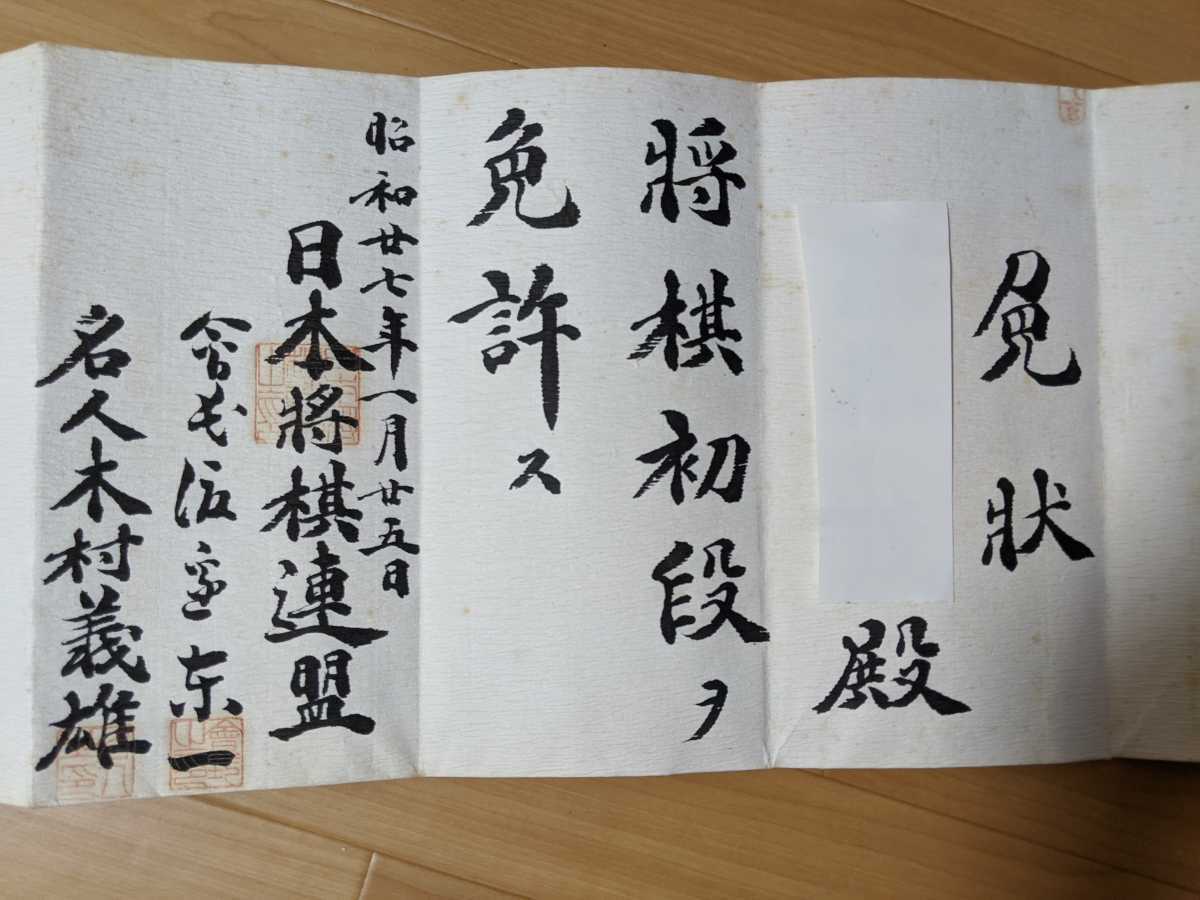 免狀
殿
將棋初段ヲ
免許ス
昭和廿七年一月廿五日
日本將棋連盟
會長渡邊東一
名人木村義雄